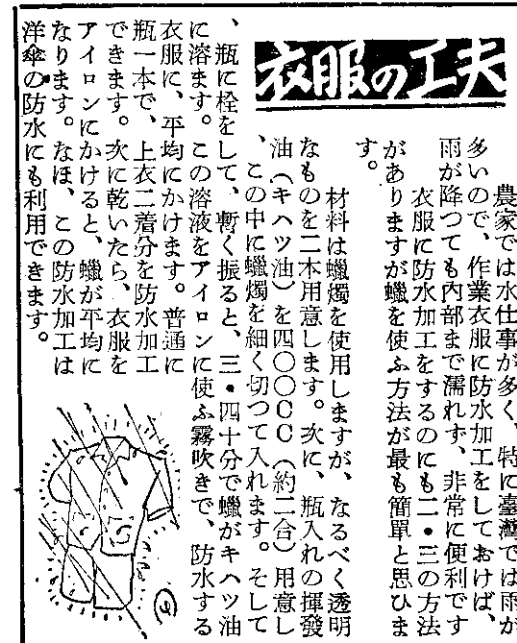 衣服の工夫
農家では水仕事が多く、特に臺灣では雨が
多いので、作業衣服に防水加工をしておけば、
雨が降つても內部まで濡れず、非常に便利です
衣服に防水加工をするのにも二・三の方法
がありますが蠟を使ふ方法が最も簡單と思ひま
す。
材料は蠟燭を使用しますが、なるべく透明
なものを二本用意します。次に、瓶入れの揮發
油（キハツ油）を四〇〇ＣＣ（約二合）用意し
、この中に蠟燭を細く切つて入れます。そして
、瓶に栓をして、暫く振ると、三・四十分で蠟がキハツ油
に溶ます。この溶液をアイロンに使ふ霧吹きで、防水する
衣服に、平均にかけます。普通に
瓶一本で、上衣二着分を防水加工
できます。次に乾いたら、衣服を
アイロンにかけると、蠟が平均に
なります。なほ、この防水加工は
洋傘の防水にも利用できます。